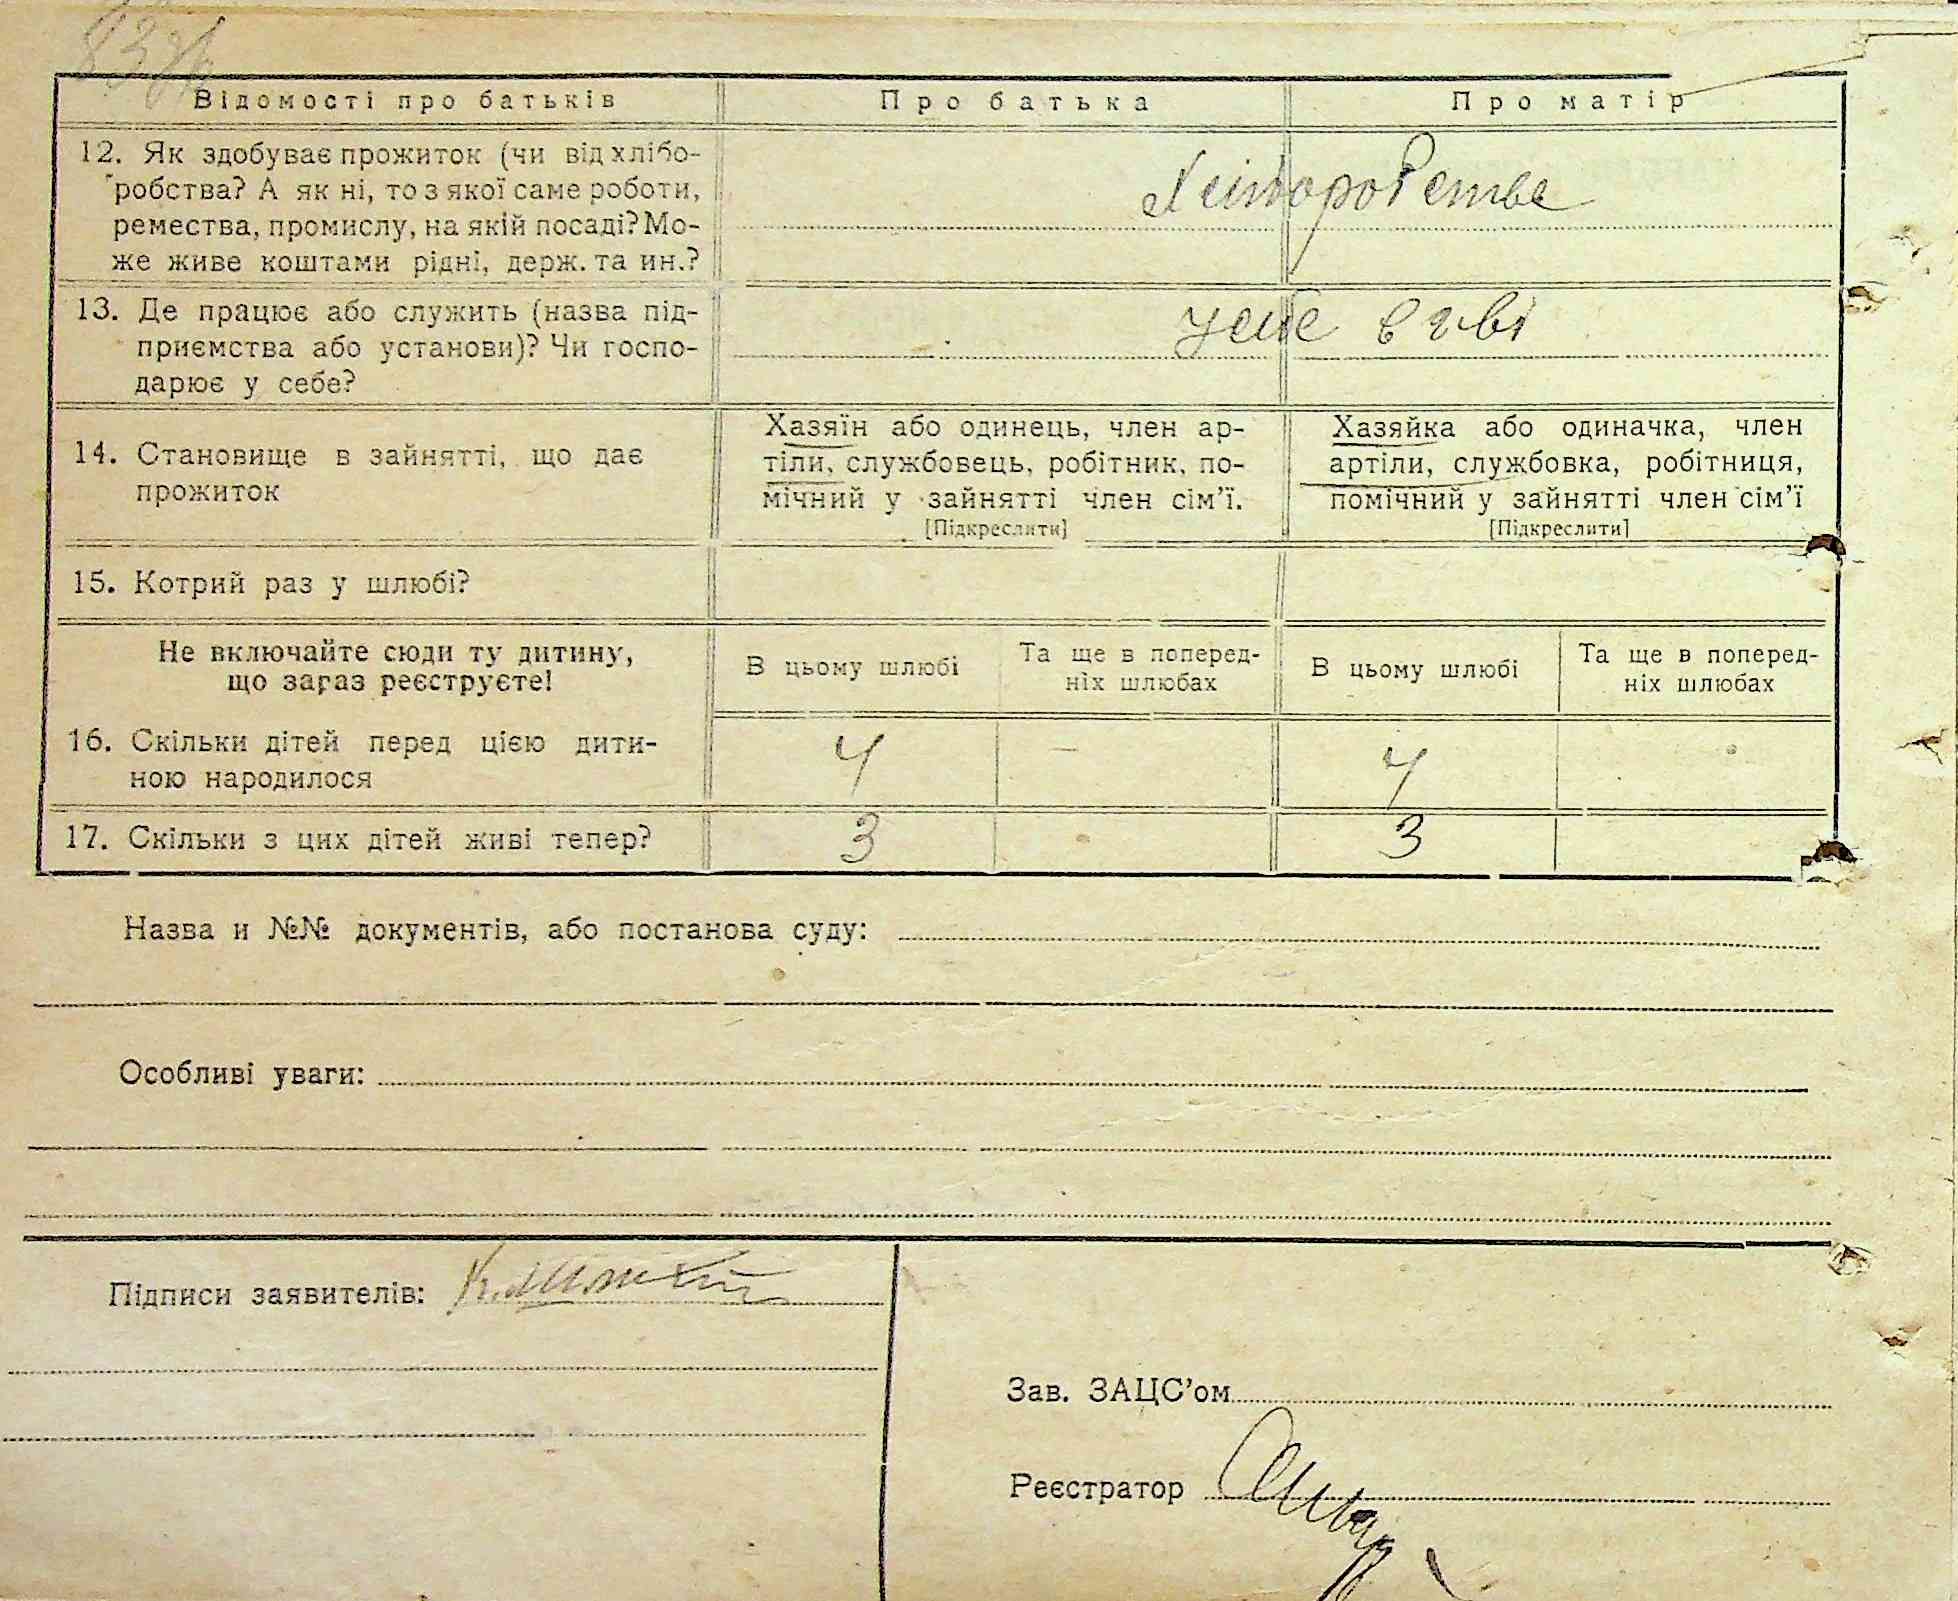 Відомості про батьків
Про батька
Про матір
12. Як здобуває прожиток (чи від хлібо-
робства? А як ні, то з якої саме роботи,
ремества, промислу, на якій посаді? Мо-
же живе коштами рідні, держ. та ин.?
13. Де працює або служить (назва під-
приємства або установи)? Чи госпо-
дарює у себе?
14. Становище в зайнятті, що дає
прожиток
Хазяїн або одинець, член ар-
тіли, службовець, робітник, по-
мічний у зайнятті член сім’ї.
[Підкреслити]
Хазяйка або одиначка, член
артіли, службовка, робітниця,
помічний у зайнятті член сім’ї
[Підкреслити]
15. Котрий раз у шлюбі?
Не включайте сюди ту дитину,
що зараз реєструєте!
В цьому шлюбі
Та ще в поперед-
ніх шлюбах
В цьому шлюбі
Та ще в поперед-
ніх шлюбах
16. Скільки дітей перед цією дити-
ною народилося
4 — 4
17. Скільки з цих дітей живі тепер?
3 3
Назва и №№ документів, або постанова суду:
Особливі уваги:
Підписи заявителів:
Зав. ЗАЦС’ом
Реєстратор